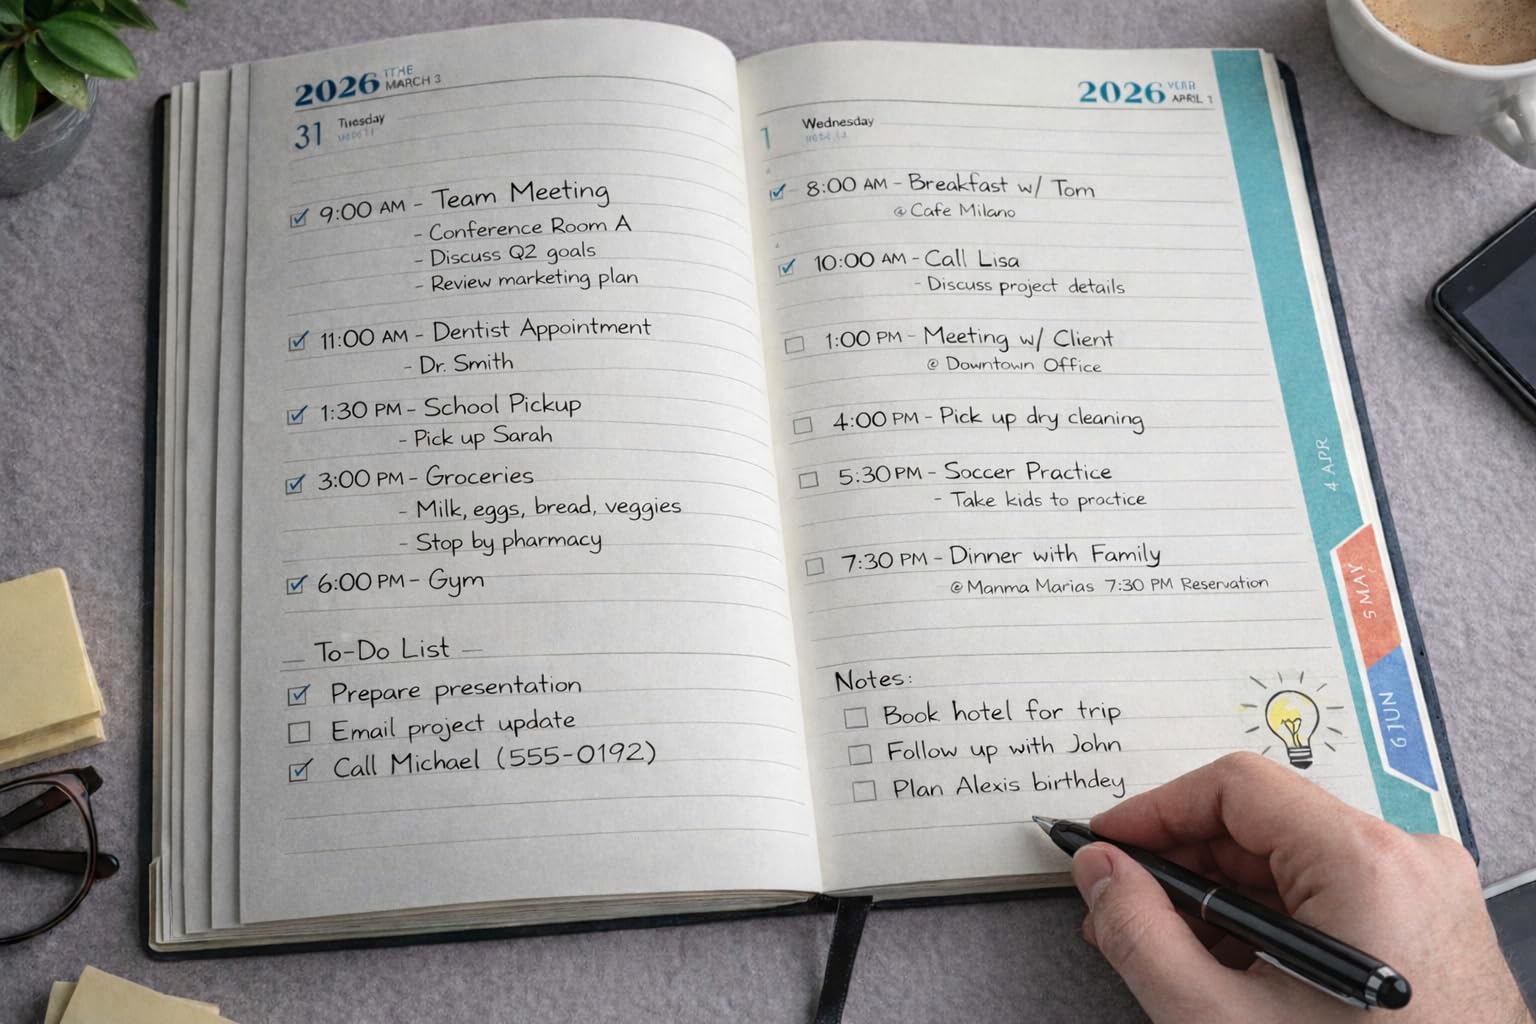 2026
MARCH 3
31 Tuesday
9:00 AM - Team Meeting
- Conference Room A
- Discuss Q2 goals
- Review marketing plan
11:00 AM - Dentist Appointment
- Dr. Smith
1:30 PM - School Pickup
- Pick up Sarah
3:00 PM - Groceries
- Milk, eggs, bread, veggies
- Stop by pharmacy
6:00 PM - Gym
To-Do List
Prepare presentation
Email project update
Call Michael (555-0192)
2026
APRIL 1
1 Wednesday
8:00 AM - Breakfast w/ Tom
@ Cafe Milano
10:00 AM - Call Lisa
- Discuss project details
1:00 PM - Meeting w/ Client
@ Downtown Office
4:00 PM - Pick up dry cleaning
5:30 PM - Soccer Practice
- Take kids to practice
7:30 PM - Dinner with Family
@ Manma Marias 7:30 PM Reservation
Notes:
Book hotel for trip
Follow up with John
Plan Alexis birthdey
4 APR
5 MAY
6 JUN